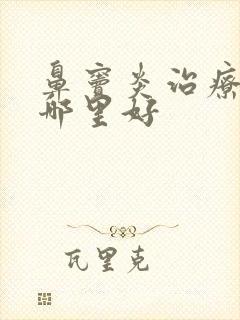 鼻窦炎治疗
那里好
瓦里克